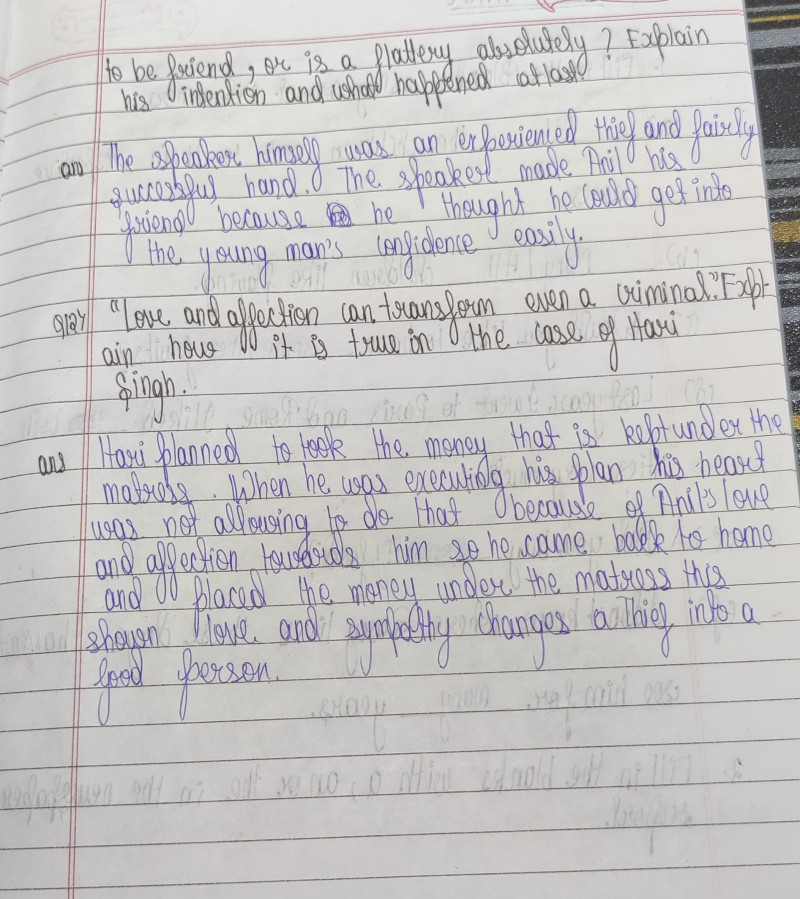 to be friend, or is a flattery absolutely? Explain
his intention and what happened at last?
an The speaker himself was an experienced thief and fairly
successful hand. The speaker made Anil his
friend because he thought he could get into
the young man's confidence easily.
"Love and affection can transform even a criminal." Expl-
ain how it is true in the case of Hari
Singh.
ans Hari planned to took the money that is kept under the
matress. When he was executing his plan his heart
was not allowing to do that because of Anil's love
and affection towards him so he came back to home
and placed the money under the matress this
shown love and sympathy changes a Thief into a
good person.